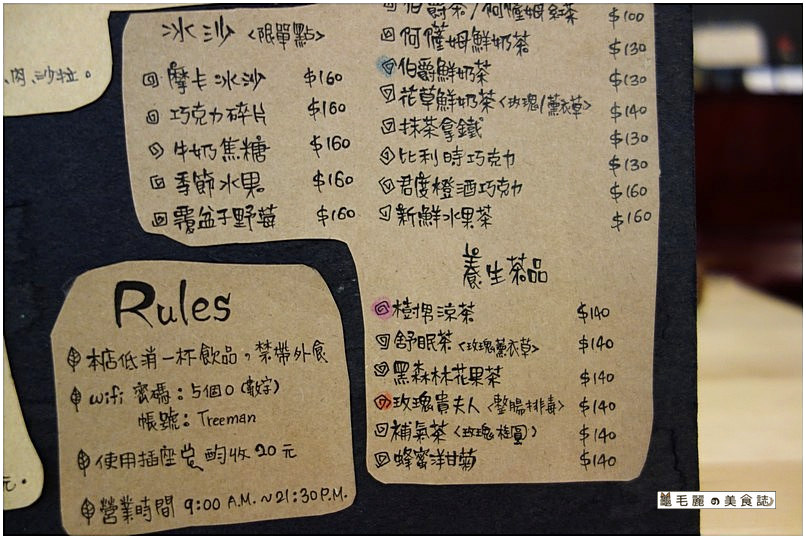 肉、沙拉。
冰沙 <限單點>
摩卡冰沙 $160
巧克力碎片 $160
牛奶焦糖 $160
季節水果 $160
覆盆子野莓 $160
伯爵茶/何僅姆紅茶 $100
何僅姆鮮奶茶 $130
伯爵鮮奶茶 $130
花草鮮奶茶<玫瑰/薰衣草> $140
抹茶拿鐵 $130
比利時巧克力 $130
君度橙酒巧克力 $160
新鮮水果茶 $160
養生茶品
涼茶 $140
舒眠茶<玫瑰薰衣草> $140
黑森林花果茶 $140
玫瑰貴夫人<整腸排毒> $140
補氣茶<玫瑰桂圓> $140
蜂蜜洋甘菊 $140
Rules
本店低消一杯飲品,禁帶外食
wifi 密碼:5個0(數字)
帳號:Treeman
使用插座酌收20元
營業時間 9:00 A.M.~21:30P.M.
元。
毛麗の美食誌